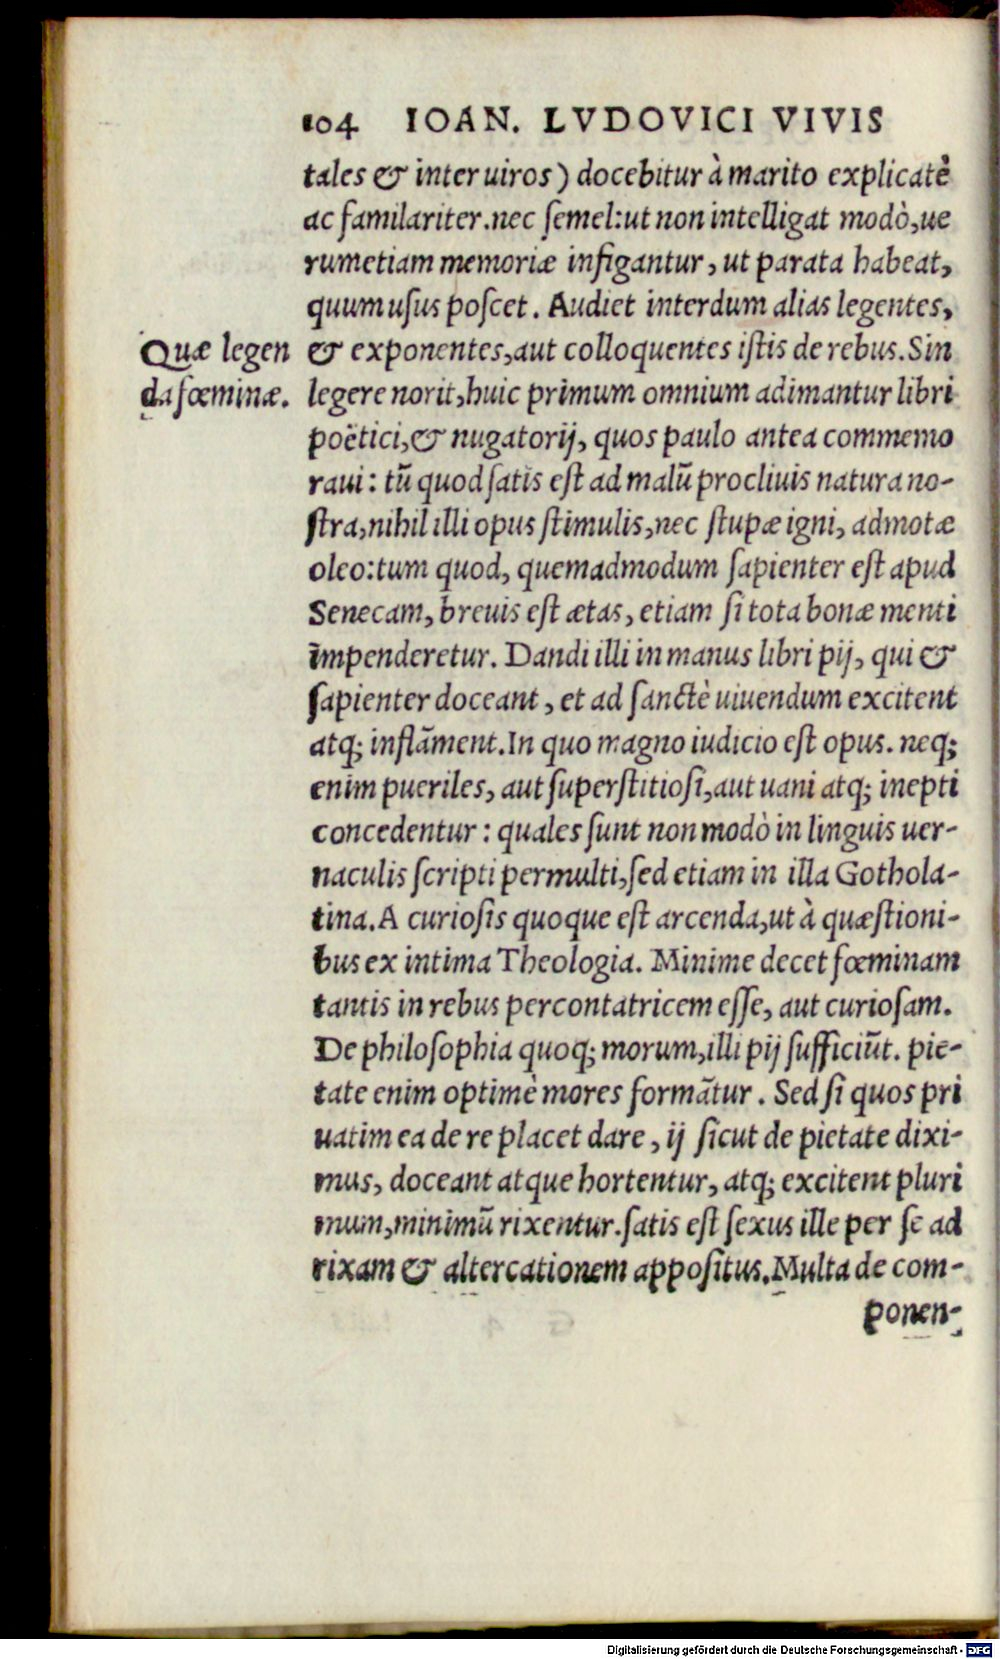 104 IOAN. LVDOVICI VIVIS
tales & inter uiros) docebitur à marito explicatè
ac familariter. nec semel: ut non intelligat modò, ue
rumetiam memoriæ infigantur, ut parata habeat,
quum usus poscet. Audiet interdum alias legentes,
Quæ legen
da fœminæ.
& exponentes, aut colloquentes istis de rebus. Sin
legere norit, huic primum omnium adimantur libri
poëtici, & nugatorij, quos paulo antea commemo
raui: tũ quod satis est ad malũ procliuis natura no-
stra, nihil illi opus stimulis, nec stupæ igni, admotæ
oleo: tum quod, quemadmodum sapienter est apud
Senecam, breuis est ætas, etiam si tota bonæ menti
impenderetur. Dandi illi in manus libri pij, qui &
sapienter doceant, et ad sanctè uiuendum excitent
atq; inflãment. In quo magno iudicio est opus. neq;
enim pueriles, aut superstitiosi, aut uani atq; inepti
concedentur: quales sunt non modò in linguis uer-
naculis scripti permulti, sed etiam in illa Gothola-
tina. A curiosis quoque est arcenda, ut à quæstioni-
bus ex intima Theologia. Minime decet fœminam
tantis in rebus percontatricem esse, aut curiosam.
De philosophia quoq; morum, illi pij sufficiũt. pie-
tate enim optimè mores formãtur. Sed si quos pri
uatim ea de re placet dare, ij sicut de pietate dixi-
mus, doceant atque hortentur, atq; excitent pluri
mum, minimũ rixentur. satis est sexus ille per se ad
rixam & altercationem appositus. Multa de com-
ponen-
Digitalisierung gefördert durch die Deutsche Forschungsgemeinschaft - DFG